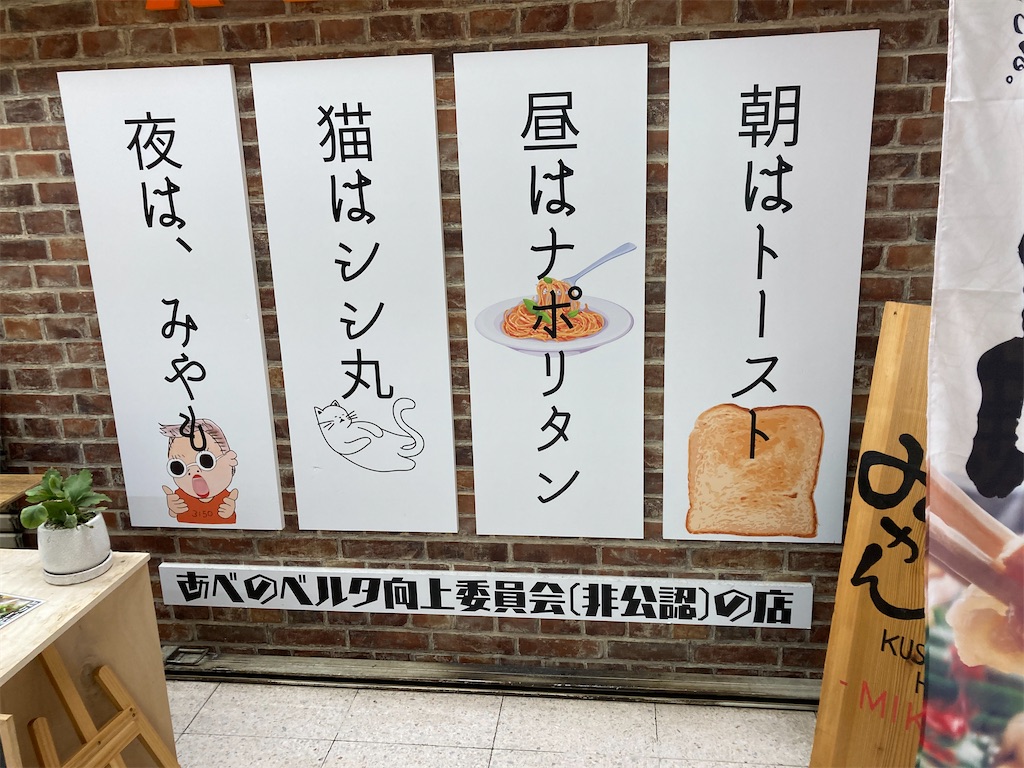 朝はトースト
昼はナポリタン
猫はシシ丸
夜は、みやも
あべのベルタ向上委員会(非公認)の店
3150
みやん
KUS
H
-MIK
る。